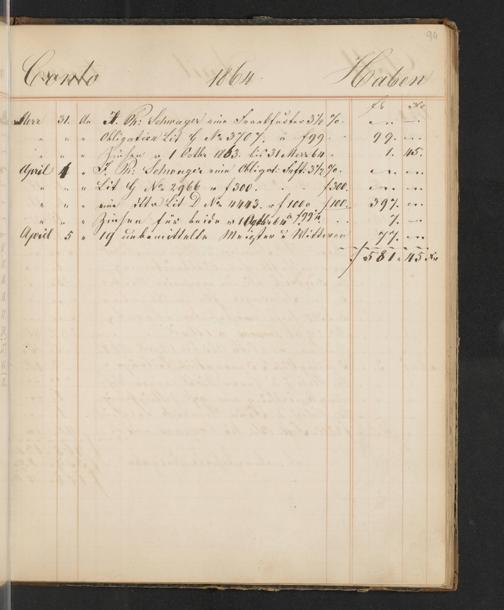 94
Conto 1864 Haben
fl. Kr
Merz 31. An H. Ph: Schwager eine Frankfurter 3½ %
" " " Obligation Lit G No 3707. a f 99 99. "
" " " Zinsen v 1 Octbr 1863. bis 31 Merz 64 1. 45.
April 1 " J. Ph: Schwager eine Obligat: 3½ %
" " " Lit G No 2966 v f 300. f 300.
" " " eine ditto Lit D No 4443. v f 100. f 100. 397. "
" " " Zinsen für beide 7. "
April 5 " 19 unbemittelte Meister u Wittwen 77. "
f 581. 45 Kr